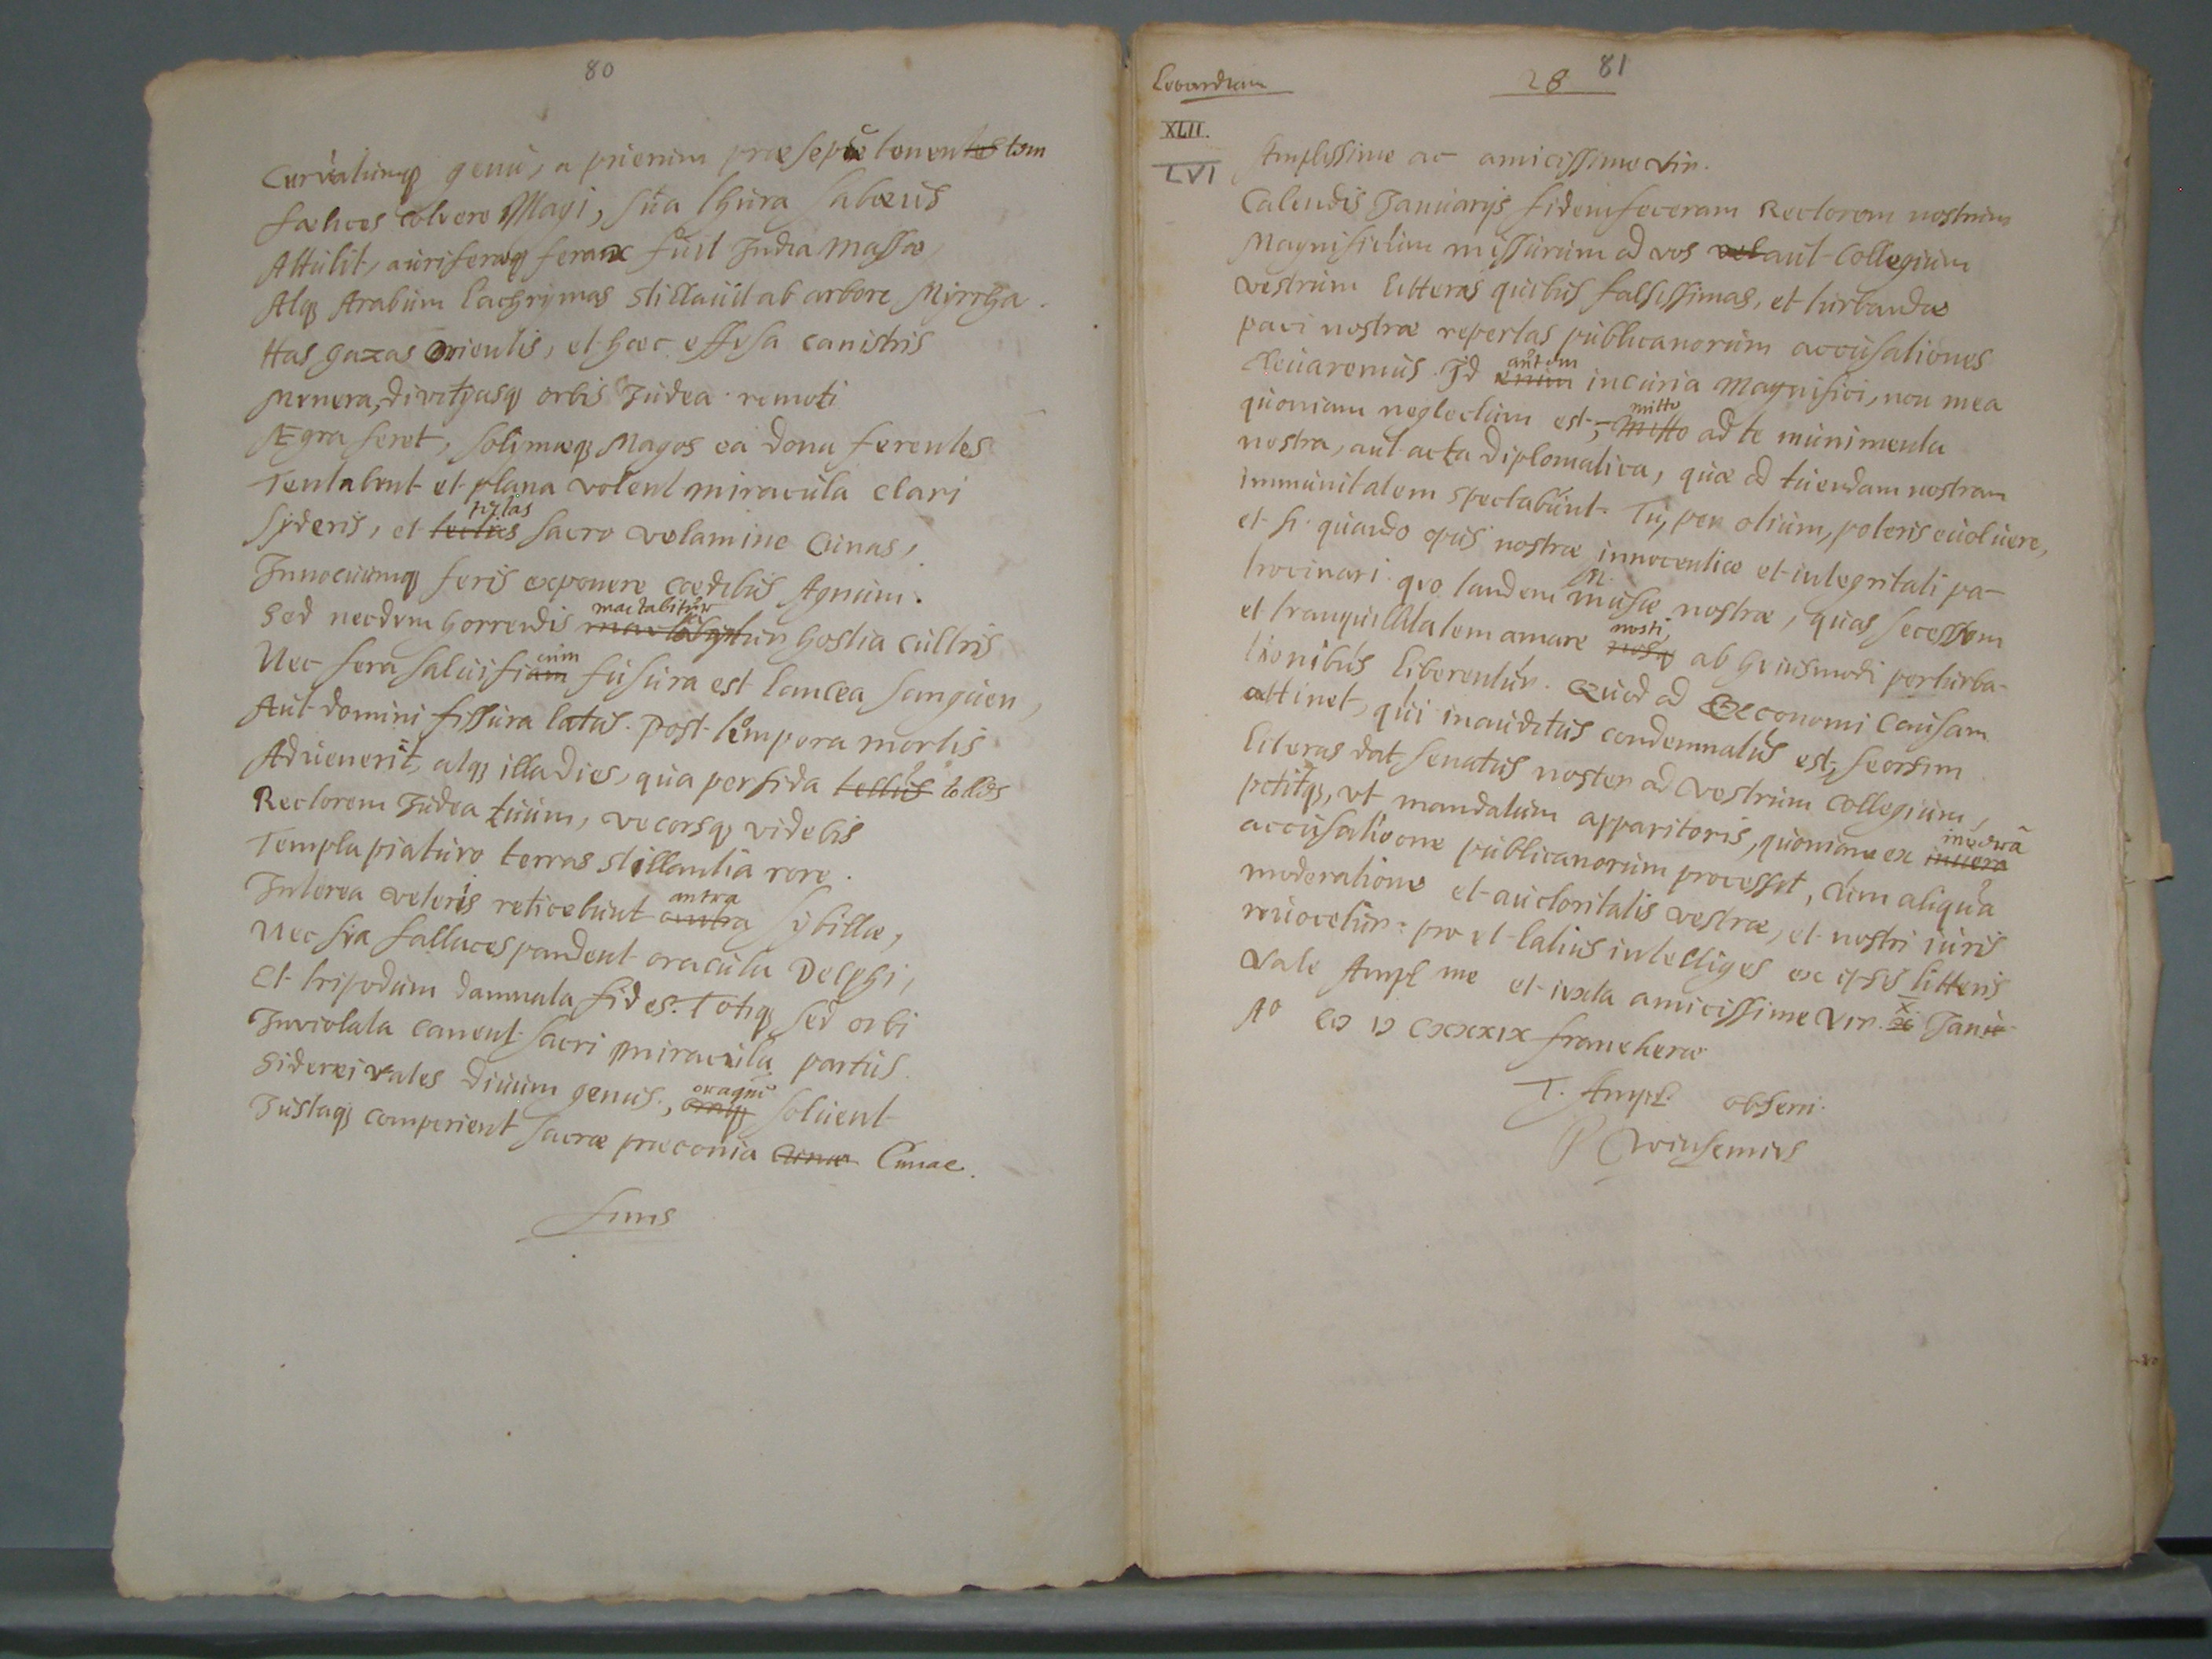 80
Curvatumq genu, a puerum præsepe tenentem
fælices colvere Magi, sua thura sabæus
Attulit, auriferæq ferax fuit India massæ,
Atq Arabum lachrymas stillauit ab arbore Myrrha.
Has gazas Orientis, et hæc effusa canistris
Munera, divitijasq orbis Judea remoti
Ægra feret, solymæq Magos ea dona ferentes
Tentabunt et plana volent miracula clari
Syderis, et tectas sacro velamine cunas,
Innocuumq feris exponere cædibus Agnum.
mactabitur
Sed necdum horrendis mactabitur hostia cultris
Nec fera salvificum fusura est lancea sanguen,
Aut domini fissura latus. post tempora mortis
Advenerit, atq illa dies, qua perfida tellus tollis
Rectorem Judea tuum, vecorsq videbis
Templa piaturo terras stillantia rore.
antra
Interea veteris reticebunt antra Sybillæ,
Nec sua fallaces pandent oracula Delphi,
Et tripodum damnata fides. Totiq sed orbi
Inviolata canent sacri miracula partus.
Siderei vates divum genus, oraq solvent
Justaq comperient sacræ præconia Cunæ Cunae.
Finis
81
28
Leovardiam
XLII.
LVI
Amplissime ac amicissime Vir.
Calendis Januarijs fidem feceram Rectorem nostrum
Magnificum missurum ad vos vel aut Collegium
vestrum litteras quibus falsissimas, et turbandæ
paci nostræ repertas publicanorum accusationes
autem
elevaremus. Id enim incuria Magnifici, non mea
mitto
quoniam neglectum est, mitto ad te munimenta
nostra, aut acta diplomatica, quæ ad tuendam nostram
immunitatem spectabunt. Tu, per otium, poteris evoluere,
et si quando opus nostræ innocentiæ et integritati pa-
trocinari. quo tandem musæ nostræ, quas secessum
nosti
et tranquillitatem amare nosq ab huiusmodi perturba-
tionibus liberentur. Quod ad Oeconomi causam
attinet, qui inauditus condemnatus est, seorsim
literas dat senatus noster ad vestrum Collegium,
petitq, vt mandatum apparitoris, quoniam ex inuera
accusatione publicanorum processit, cum aliqua
moderatione et auctoritatis vestræ, et nostri iuris
reuocetur. pro vt latius intelliges ex ipsis litteris
Vale Ampl me et iuxta amicissime Vir. X Janu
Ao CIↃ IↃ CXXXIX franekeræ
T. Ampl. observ.
P Winsemius